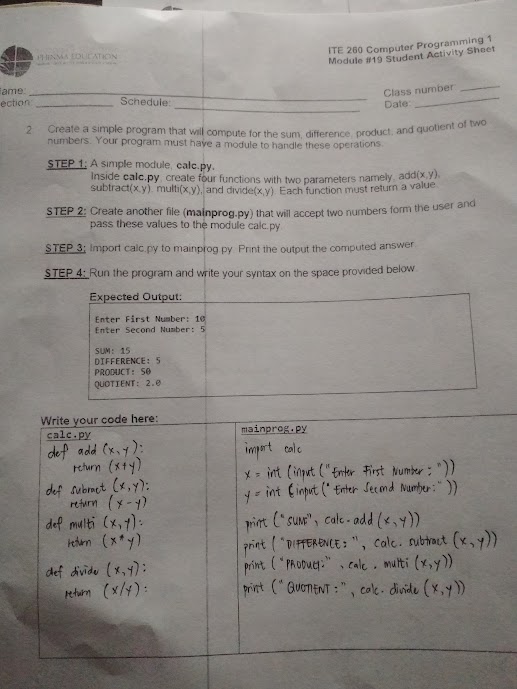 PHINMA EDUCATION
ITE 260 Computer Programming 1
Module #19 Student Activity Sheet
ame:
Class number:
ection: Schedule: Date:
2. Create a simple program that will compute for the sum, difference, product, and quotient of two
numbers. Your program must have a module to handle these operations.
STEP 1: A simple module, calc.py.
Inside calc.py, create four functions with two parameters namely, add(x,y),
subtract(x,y), multi(x,y), and divide(x,y). Each function must return a value.
STEP 2: Create another file (mainprog.py) that will accept two numbers form the user and
pass these values to the module calc.py
STEP 3: Import calc.py to mainprog.py. Print the output the computed answer.
STEP 4: Run the program and write your syntax on the space provided below.
Expected Output:
Enter First Number: 10
Enter Second Number: 5
SUM: 15
DIFFERENCE: 5
PRODUCT: 50
QUOTIENT: 2.0
Write your code here:
calc.py
def add (x,y):
return (x+y)
def subract (x,y):
return (x-y)
def multi (x,y):
return (x*y)
def divide (x,y):
return (x/y):
mainprog.py
import calc
x = int (input ("Enter First Number: "))
y = int (input ("Enter Second Number: "))
print ("SUM", calc.add (x,y))
print ("DIFFERENCE: ", calc. subtract (x,y))
print ("PRODUCT:" , calc . multi (x,y))
print ("QUOTIENT :", calc. divide (x,y))